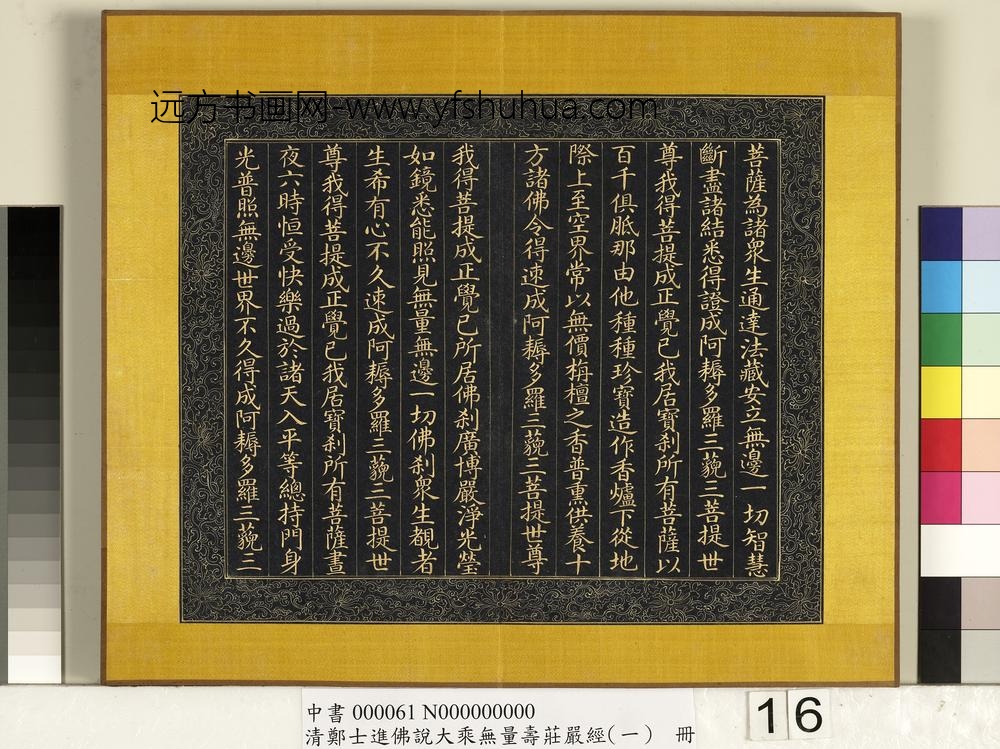 远方书画网-www.yfshuhua.com
菩薩為諸衆生通達法藏安立無邊一切智慧
斷盡諸結悉得證成阿耨多羅三藐三菩提世
尊我得菩提成正覺已我居寶刹所有菩薩以
百千俱胝那由他種種珍寶造作香爐下從地
際上至空界常以無價栴檀之香普熏供養十
方諸佛令得速成阿耨多羅三藐三菩提世尊
我得菩提成正覺已所居佛刹廣博嚴淨光瑩
如鏡悉能照見無量無邊一切佛刹衆生覩者
生希有心不久速成阿耨多羅三藐三菩提世
尊我得菩提成正覺已我居寶刹所有菩薩晝
夜六時恒受快樂過於諸天入平等總持門身
光普照無邊世界不久得成阿耨多羅三藐三
中書 000061 N000000000
清鄭士進佛說大乘無量壽莊嚴經(一) 冊
16